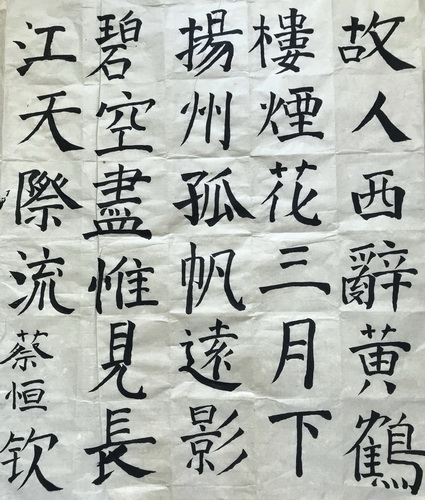 故人西辭黃鶴
樓煙花三月下
揚州孤帆遠影
碧空盡惟見長
江天際流
蔡恒欽